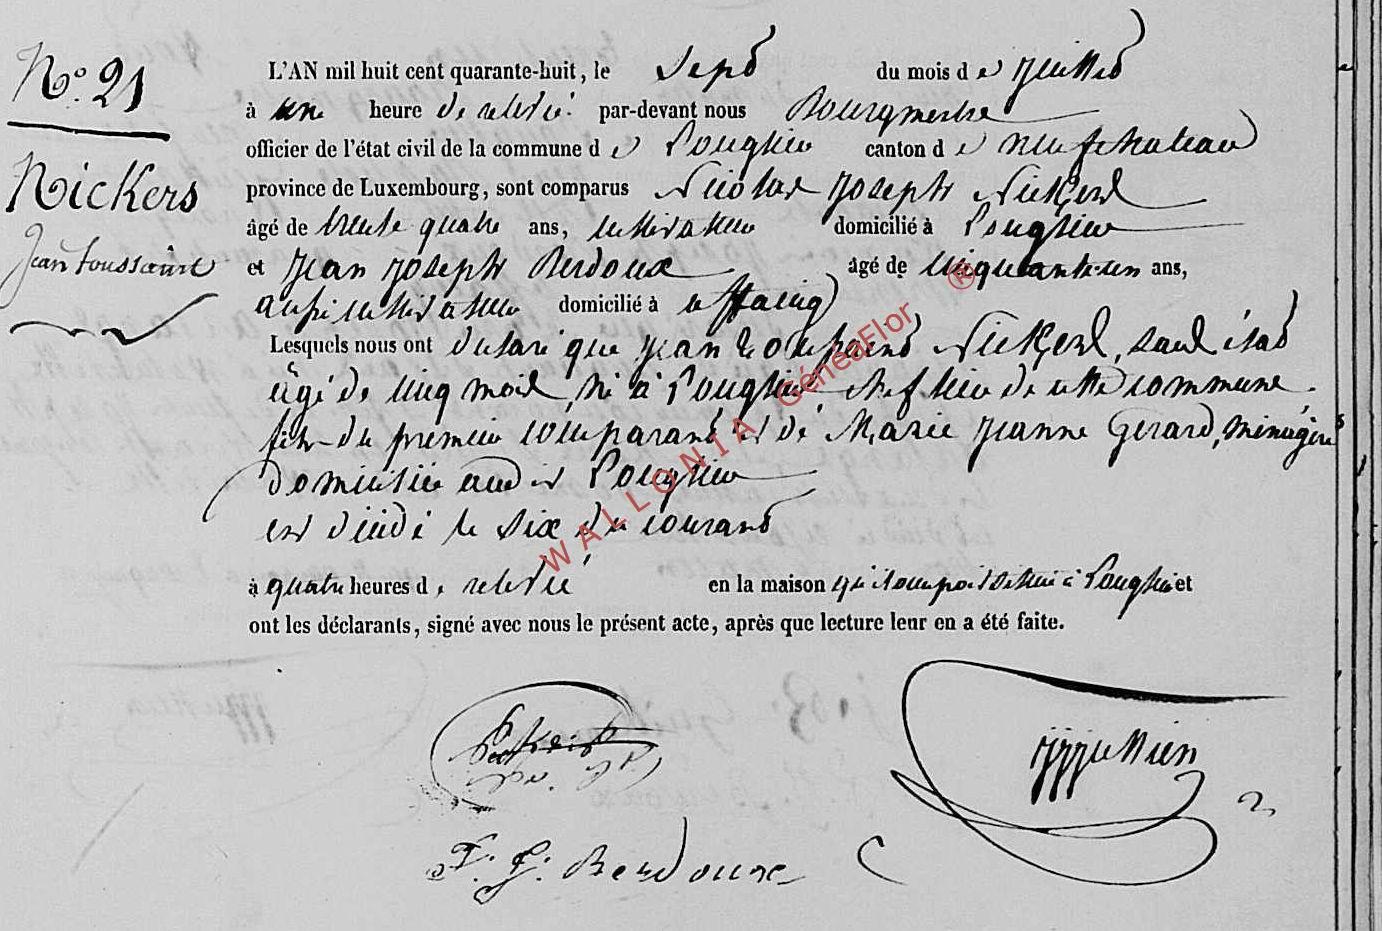 N°. 21
Nickers
Jean toussaint
L'AN mil huit cent quarante-huit, le sept du mois de juillet
à une heure de relevée par-devant nous Bourgmestre
officier de l'état civil de la commune de Longlier canton de neufchateau
province de Luxembourg, sont comparus Nicolas Joseph Nickers
âgé de trente quatre ans, cultivateur domicilié à Longlier
et Jean Joseph Berdoux âgé de cinquante-un ans,
aussi cultivateur domicilié à
Lesquels nous ont déclaré que Jean toussaint Nickers, sans état
âgé de cinq mois, né à Longlier chef lieu de cette commune.
fils du premier comparant et de Marie Jeanne Gerard, ménagère
domiciliée audit Longlier
est décédé le six du courant
à quatre heures de relevée en la maison qu'il occupoit située à Longlier et
ont les déclarants, signé avec nous le présent acte, après que lecture leur en a été faite.
J. J. Berdoux
WALLONIA GénéaFlor ®